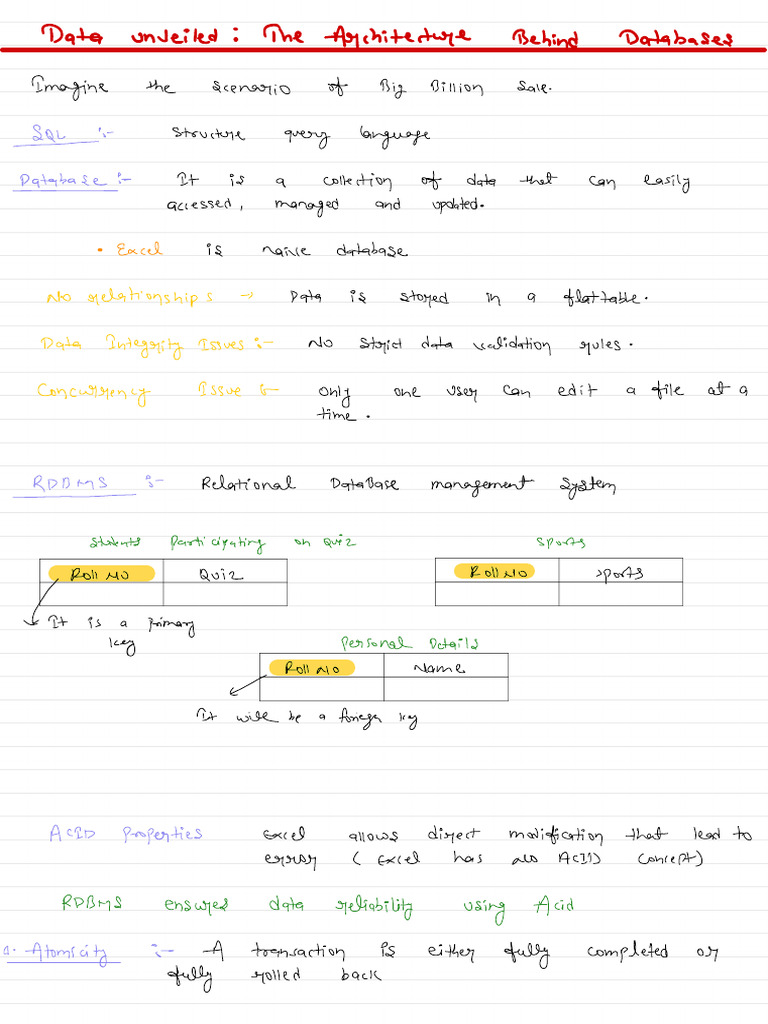 Data unveiled : The Architecture Behind Databases
Imagine the scenario of Big Billion Sale.
SQL :- Structure query language
Database :- It is a collection of data that can easily
accessed, managed and updated.
• Excel is naive database
No relationships → Data is stored in a flat table.
Data Integrity Issues :- No strict data validation rules.
Concurrency Issue :- only one user can edit a file at a
time.
RDBMS :- Relational DataBase management System
Students Participating on Quiz
Sports
Roll No Quiz
Roll No Sports
It is a Primary
key
Personal Details
Roll No Name
It will be a foreign key
ACID Properties Excel allows direct modification that lead to
error ( Excel has no ACID concept)
RDBMS ensures data reliability using Acid
1. Atomicity :- A transaction is either fully completed or
fully rolled back